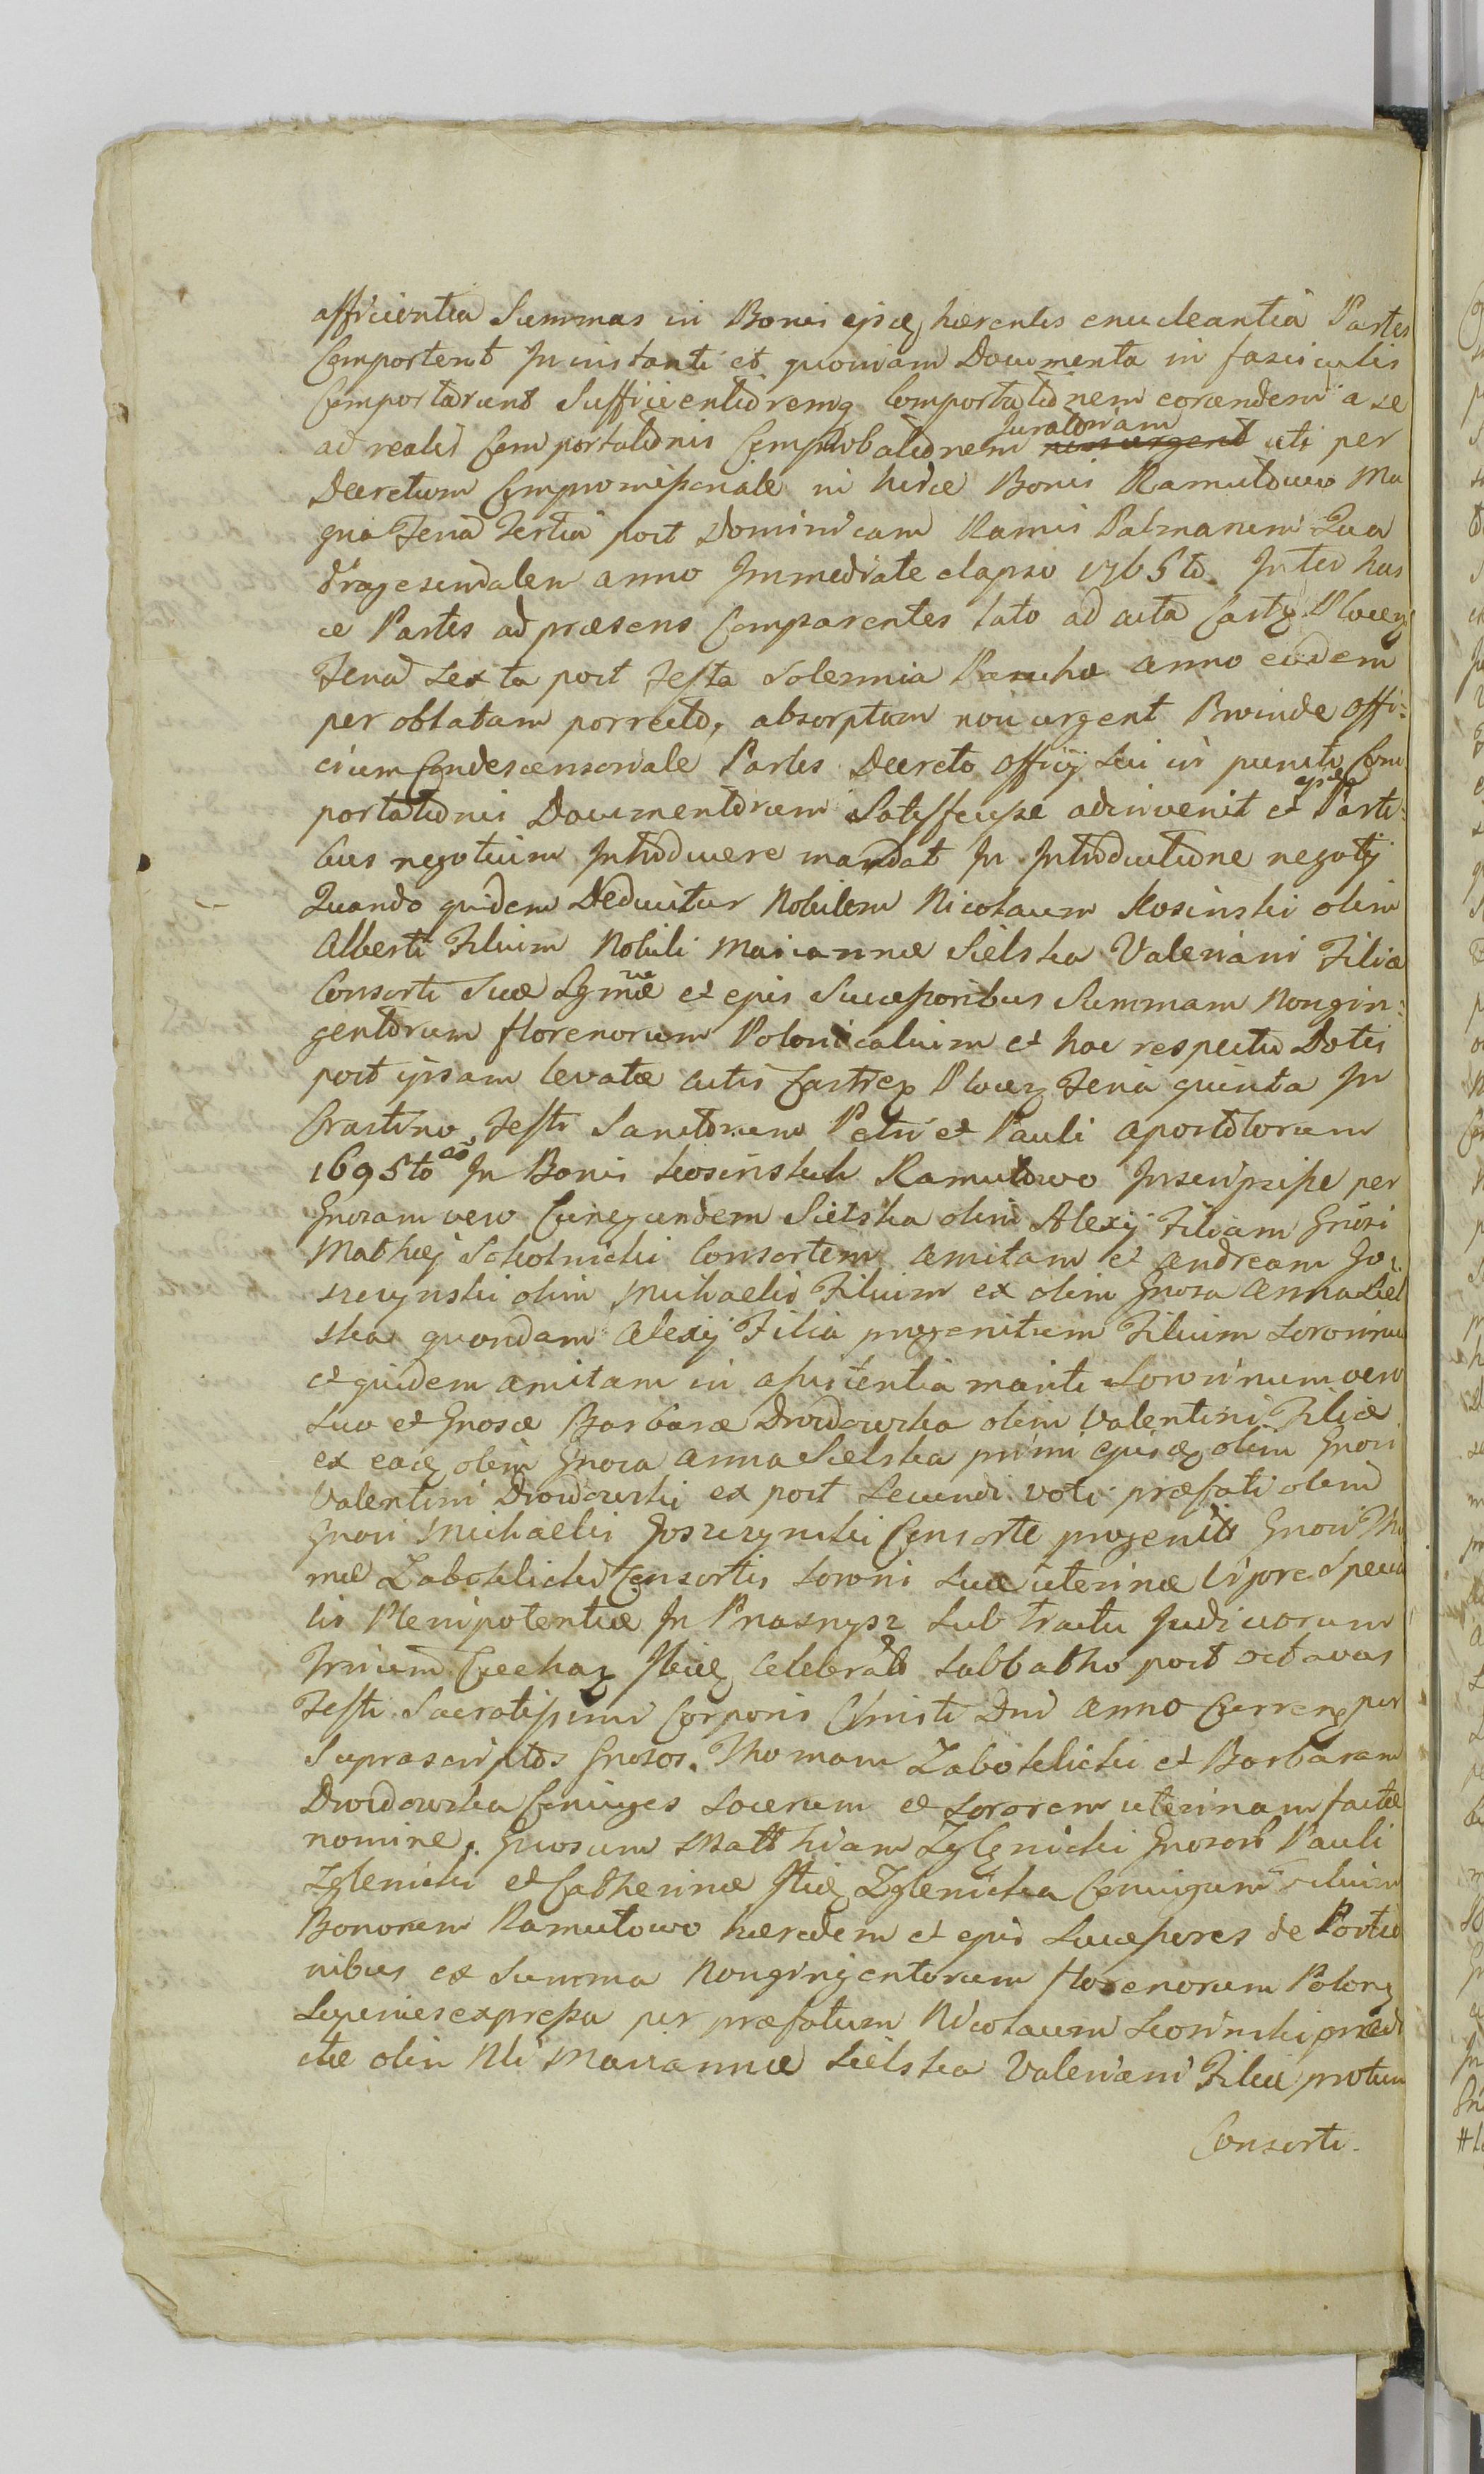 afficientia Summas in Bonis ejsdg hærentes enucleantia Partes
Comportent In instanti et quoniam Documenta in fasciculis
Comportarunt Sufficientioremq Comportationem eorundem a se
ad realis Comportationis Comprobationem Juratoriam non urgent uti per
Decretum Compromissoriale in hisce Bonis Ramutowo Ma
gna Feria Tertia post Dominicam Ramis Palmarum Qua
dragesimalem anno Immediate elapso 1765to. Inter has
ce Partes ad præsens Comparentes lato ad acta Castr Plocen
Feria Sexta post Festa Solennia Paschæ anno eodem
per oblatam porrecto, absorptum non urgent Proinde Offi:
cium Condescensoriale Partes Decreto Officij Sui in puncto Com
portationis Documentorum Satisfecisse adinvenit et Parti:
bus negotium Introducere mandat In Introductione negotij
Quando quidem Deducitur Nobilem Nicolaum Kosinski olim
Alberti Filium Nobili Mariannæ Sielska Valeriani Filiæ
Consorti Suæ Lgmæ et ejus Successoribus Summam Nongin:
gentorum florenorum Polonicalium et hoc respectu Dotis
post ipsam levatæ actis Castren Plocen Feria quinta In
Crastino Festi Sanctorum Petri et Pauli Apostolorum
1695to ao In Bonis Kosinskich Ramutowo Inscripsisse per
Gnosam vero Cunegundem Sielska olim Alexij Filiam Gnosi
Mathiæ Sokolnicki Consortem amitam et Andream Go
szczynski olim Michaelis Filium ex olim Gnosa Anna Siel
ska quondam Alexij Filia progenitum Filium Sororinum
et quidem amitam in assistentia mariti Sororinum vero
Suo et Gnosæ Barbaræ Drozdowska olim Valentini Filiæ
ex eadg olim Gnosa Anna Sielska primi ejusdg olim Gnosi
Valentini Drozdowski ex post Secundi voti præfati olim
Gnosi Michaelis Goszczynski Consorte progenitæ Gnosi Tho
mæ Zaboklicki Consortis Sororis Suæ uterinæ Vigore Specia
lis Plenipotentiæ In Prasnysz Sub Tractu Judiciorum
Trium Czechan Ibidg Celebrato Sabbatho post octavas
Festi Sacratissimi Corporis Christi Dni anno Curren per
Suprascriptos Gnosos. Thomam Zaboklicki et Barbaram
Drozdowska Conjuges Socerum et Sororem uterinam factæ
nomine. Gnosum Matthiam Zglenicki Gnosorum Pauli
Zglenicki et Catherinæ Zglenicka Conjugum Filium
Bonorum Ramutowo hæredem et ejus Successores de Portio
nibus ex Summa Nongingentorum florenorum Polon
Superius expressa per præfatum Nicolaum Kosinski præd
ctæ olim Nli Mariannæ Sielska Valeriani Filiæ protunc
Consorti.